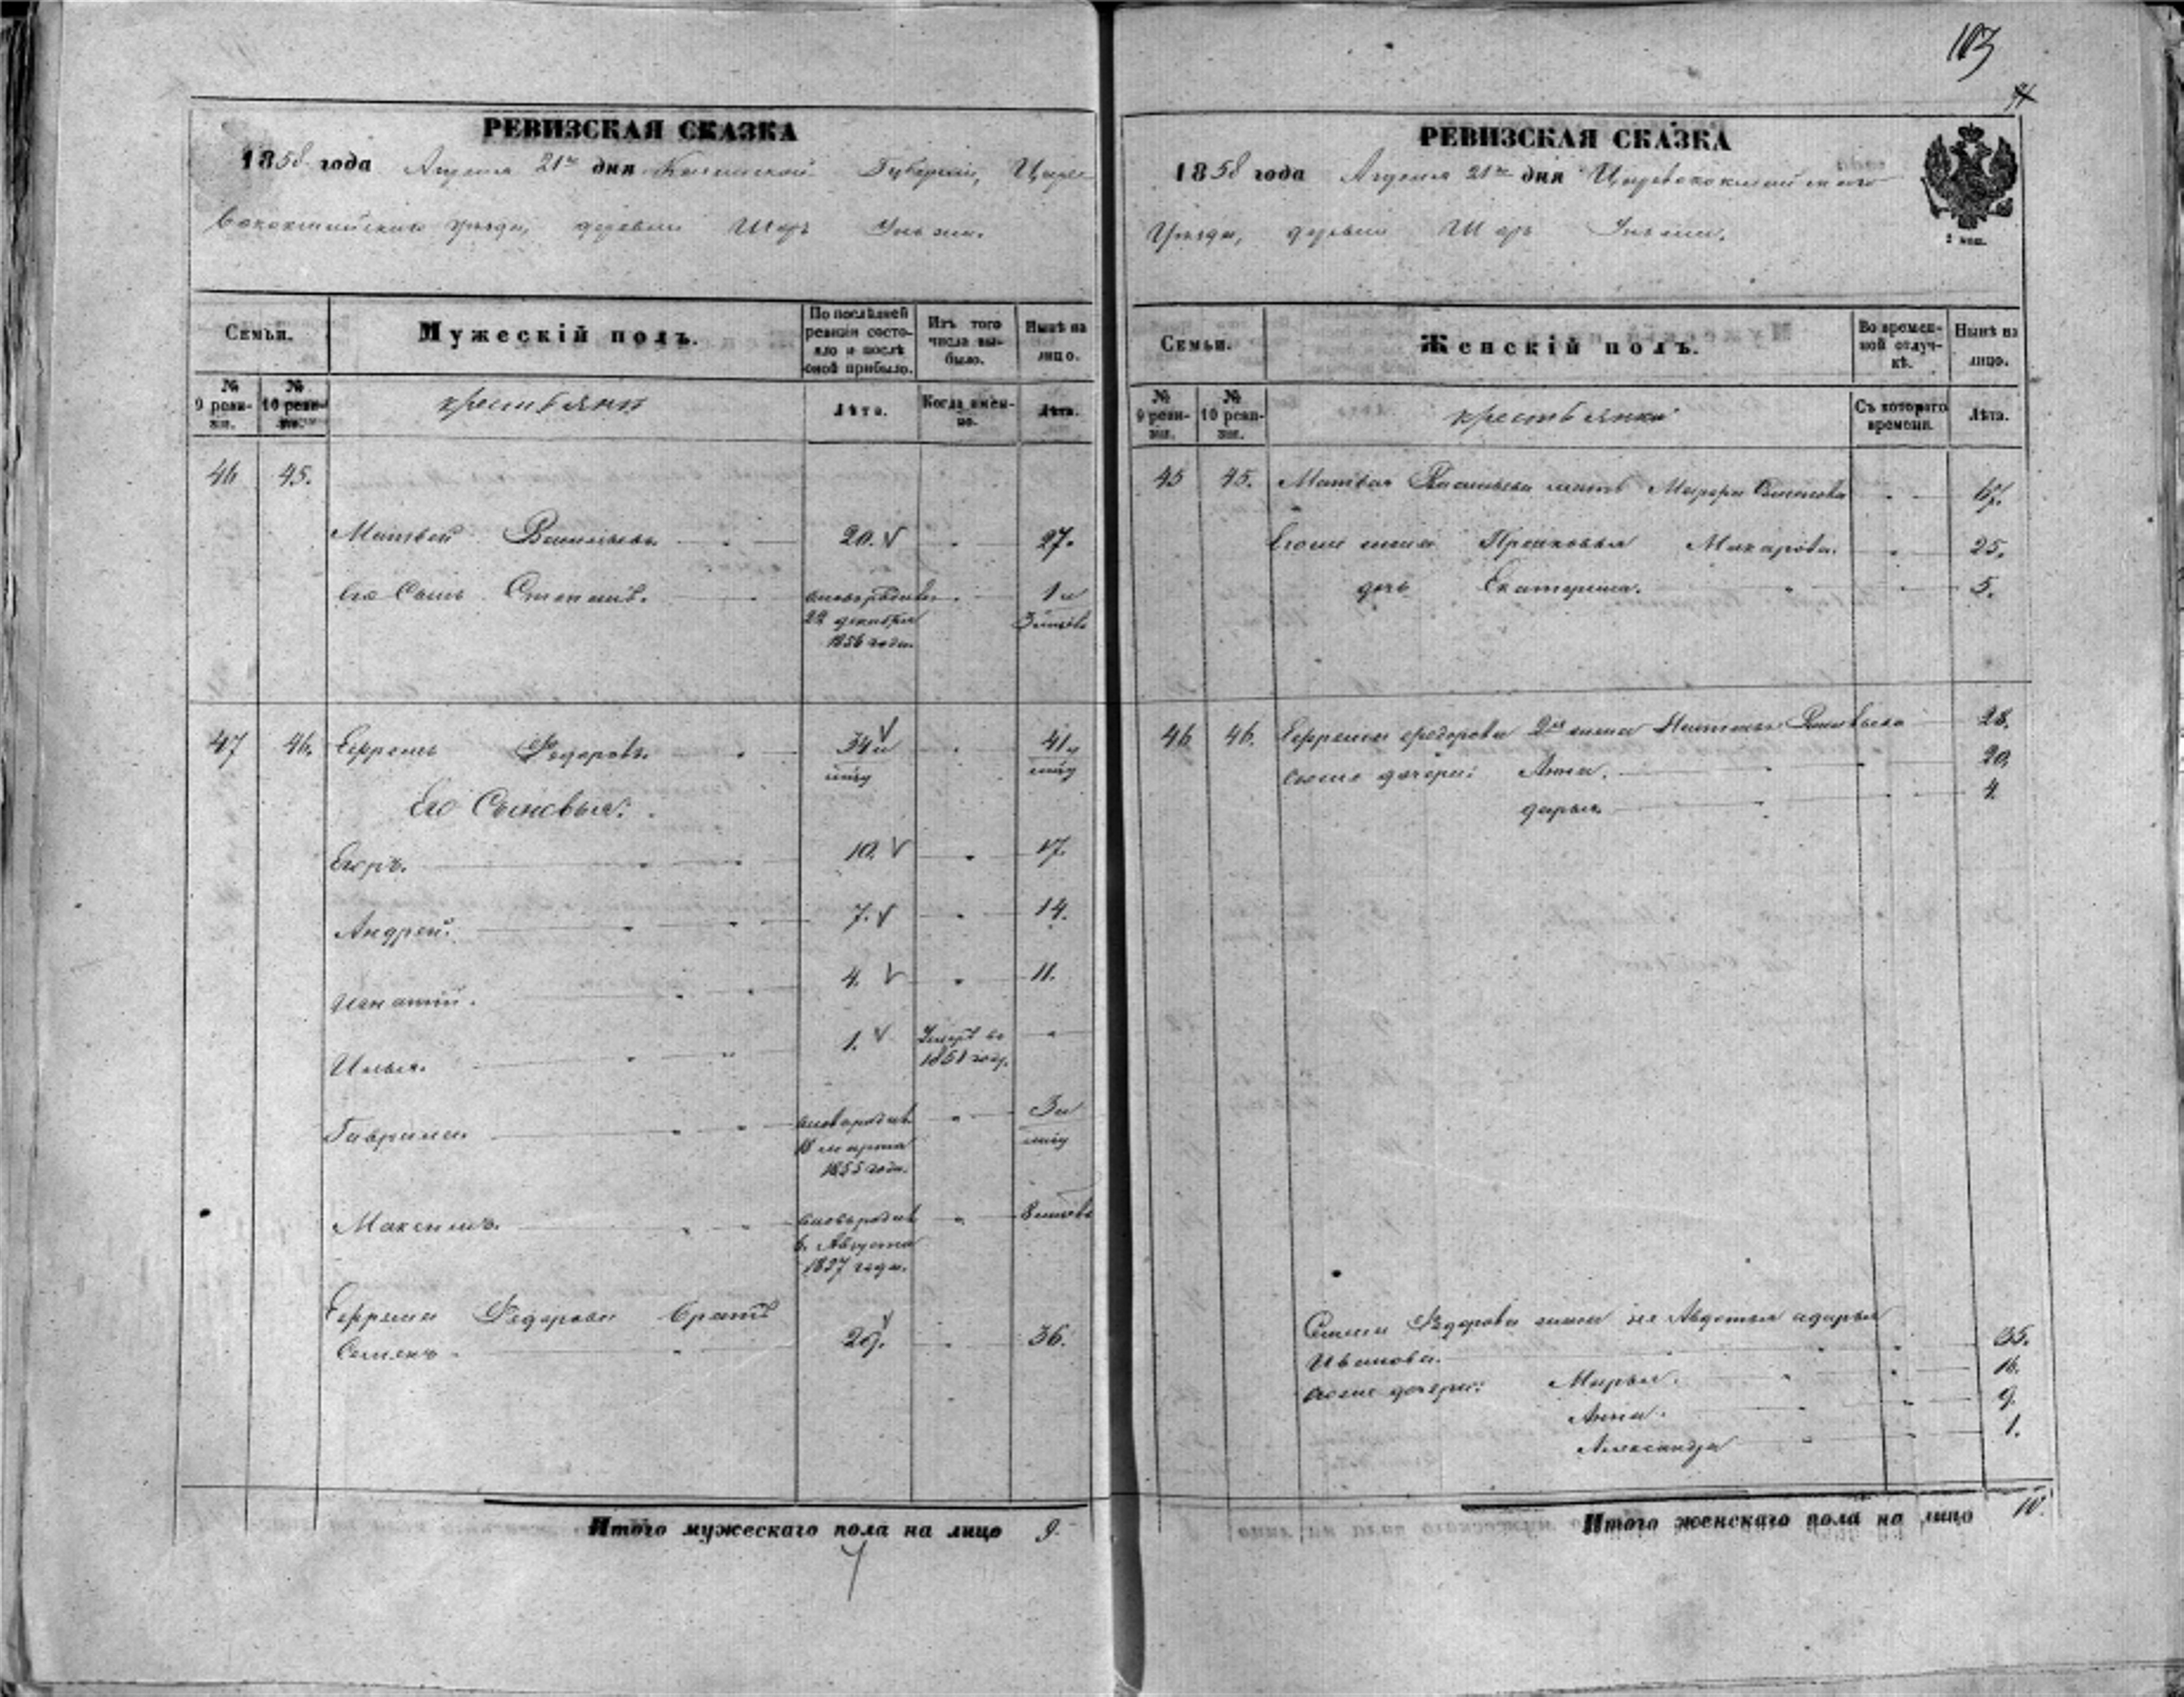 103
РЕВИЗСКАЯ СКАЗКА
1858 года Апреля 21го дня Казанской Губернии, Царе
вококшайскаго уезда, деревни Шор Уньжи.
Семьи.
Мужескій полъ.
По послѣдней ревизіи состояло и послѣ оной прибыло.
Изъ того числа выбыло.
Нынѣ на лицо.
№ 9 ревизіи.
№ 10 ревизіи.
крестьяне
Лѣта.
Когда именно.
Лѣта.
46 45.
Матвей Васильевъ 20. 27.
Его Сынъ Степанъ. вновь рожден 22 декабря 1856 года. 1 и 3 мысяц
47 46. Ефремъ Федоровъ. 34 и 41 и
Его Сыновья:
Егоръ. 10. 17.
Андрей. 7. 14.
Игнатий. 4. 11.
Илья. 1. Умеръ въ 1851 году.
Гаврила. 18 марта 1855 года. 3 и
Максимъ. 6. Августа 1857 года. 8
Ефрема Федорова братъ
Семенъ. 29. 36.
Итого мужескаго пола на лицо 9.
РЕВИЗСКАЯ СКАЗКА
1858 года Апреля 21го дня Царевококшайскаго
Уезда, деревни Шор Уньжи.
2 коп.
Семьи.
Женскій полъ.
Во временной отлучкѣ.
Нынѣ на лицо.
№ 9 ревизіи.
№ 10 ревизіи.
крестьянки
Съ котораго времени.
Лѣта.
45 45. Матвея Васильева мать Марфа Семенова 67.
Его же жена Прасковья Макарова. 25.
дочь Екатерина. 5.
46 46. Ефрема Федорова 2ая жена Васильева 28.
Его же дочери: Анна. 20.
Дарья 4.
Семена Федорова жена не Авдотья а Дарья
Иванова. 35.
Его же дочери: Марья. 16.
Анна. 9.
Александра 1.
Итого женскаго пола на лицо 10.